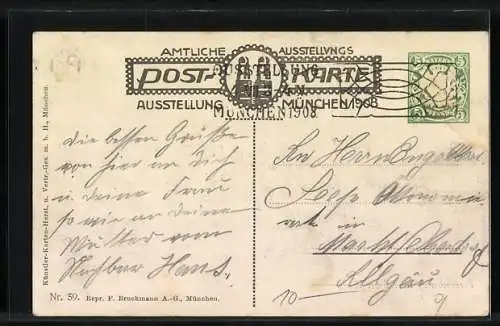 AMTLICHE AUSSTELLUNGS
POST-KARTE
AUSSTELLUNG MÜNCHEN 1908
AUSSTELLUNG
MÜNCHEN 1908
5 5
Künstler-Karten-Herst. u. Vertr.-Ges. m. b. H., München.
Die besten Grüße
von hier an Dich
u. deine Frau
so wie an deine
Mutter vom
Hans.
An Herrn
Sepp
in
Allgäu
10
9
Nr. 59. Repr. F. Bruckmann A.-G., München.